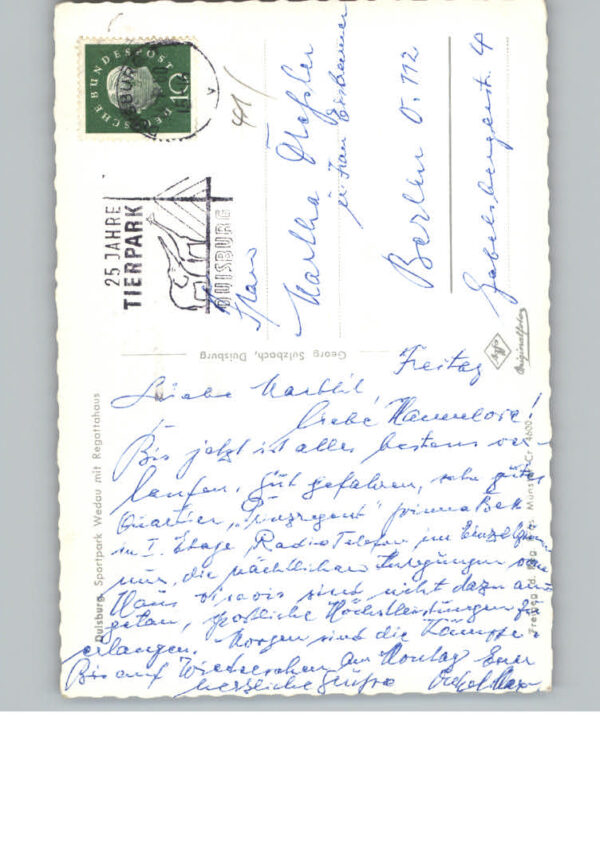 DEUTSCHE BUNDESPOST
10
DUISBURG
25 JAHRE
TIERPARK
DUISBURG
41/
Frau
Martha
b/ Frau
Berlin O. 112
Gabelsbergerstr. 4
Georg Sulzbach, Duisburg
Agfa
Originalfoto
Duisburg Sportpark Wedau mit Regattahaus
Freitag
Liebe
liebe Hannelore!
Bis jetzt ist alles bestens ver-
laufen, gut gefahren, sehr gutes
Quartier, „Prinzregent" prima Bett
in I. Etage, Radio Telefon im Einzelzimmer
nur, die nächtlichen Anregungen vom
Haus visavis sind nicht dazu an-
getan, sportliche Höchstleistungen zu
erlangen. Morgen sind die Kämpfe.
Bis auf Wiedersehen am Montag Euer
herzliche Grüsse Onkel Max